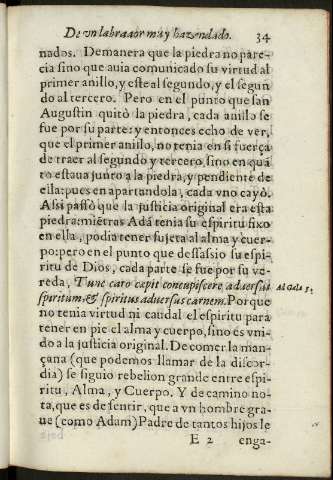 De vn labrador muy hazendado. 34
nados. Demanera que la piedra no pare-
cia sino que auia comunicado su virtud al
primer anillo, y este al segundo, y el segun
do al tercero. Pero en el punto que san
Augustin quitò la piedra, cada anillo se
fue por su parte: y entonces echo de ver,
que el primer anillo, no tenia en si fuerça
de traer al segundo y tercero, sino en quã
to estaua junto a la piedra, y pendiente de
ella: pues en apartandola, cada vno cayò.
Assi passò que la justicia original era esta
piedra: miẽtras Adã tenia su espiritu fixo
en ella, podia tener sujeta al alma y cuer-
po: pero en el punto que desasio su espi-
ritu de Dios, cada parte se fue por su ve-
reda, Tunc caro capit concupiscere aduersus
spiritum, & spiritus aduersus carnem. Porque
no tenia virtud ni caudal el espiritu para
tener en pie el alma y cuerpo, sino es vni-
do a la justicia original. De comer la man-
çana (que podemos llamar de la discor-
dia) se siguio rebelion grande entre espi-
ritu, Alma, y Cuerpo. Y de camino no-
ta, que es de sentir, que a vn hombre gra-
ue (como Adam) Padre de tantos hijos le
E 2 enga-
Ad Gala 5.